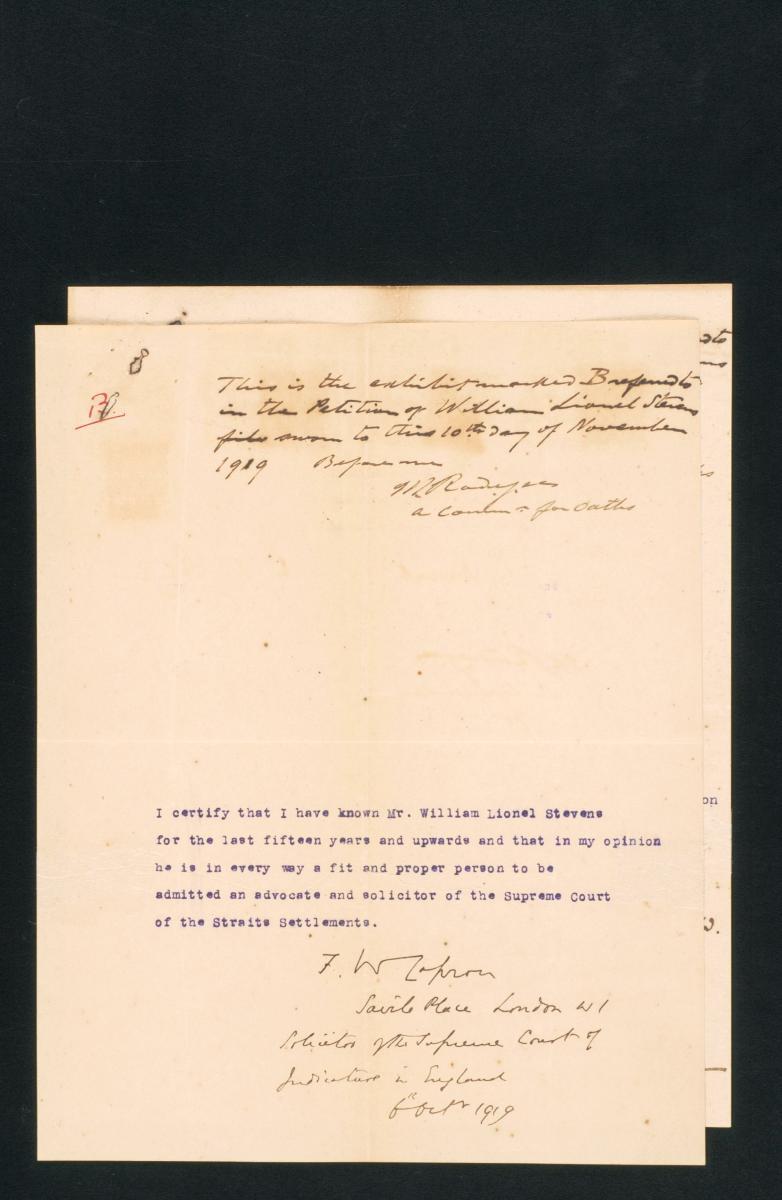 8
B.
This is the exhibit marked B referred to
in the Petition of William Lionel Stevens
sworn to this 10th day of November
1919 Before me
a Comm. for Oaths
I certify that I have known Mr. William Lionel Stevens
for the last fifteen years and upwards and that in my opinion
he is in every way a fit and proper person to be
admitted an advocate and solicitor of the Supreme Court
of the Straits Settlements.
F. W Capron
Savile Place London W1
Solicitor of the Supreme Court of
Judicature in England
6th Octr 1919
on